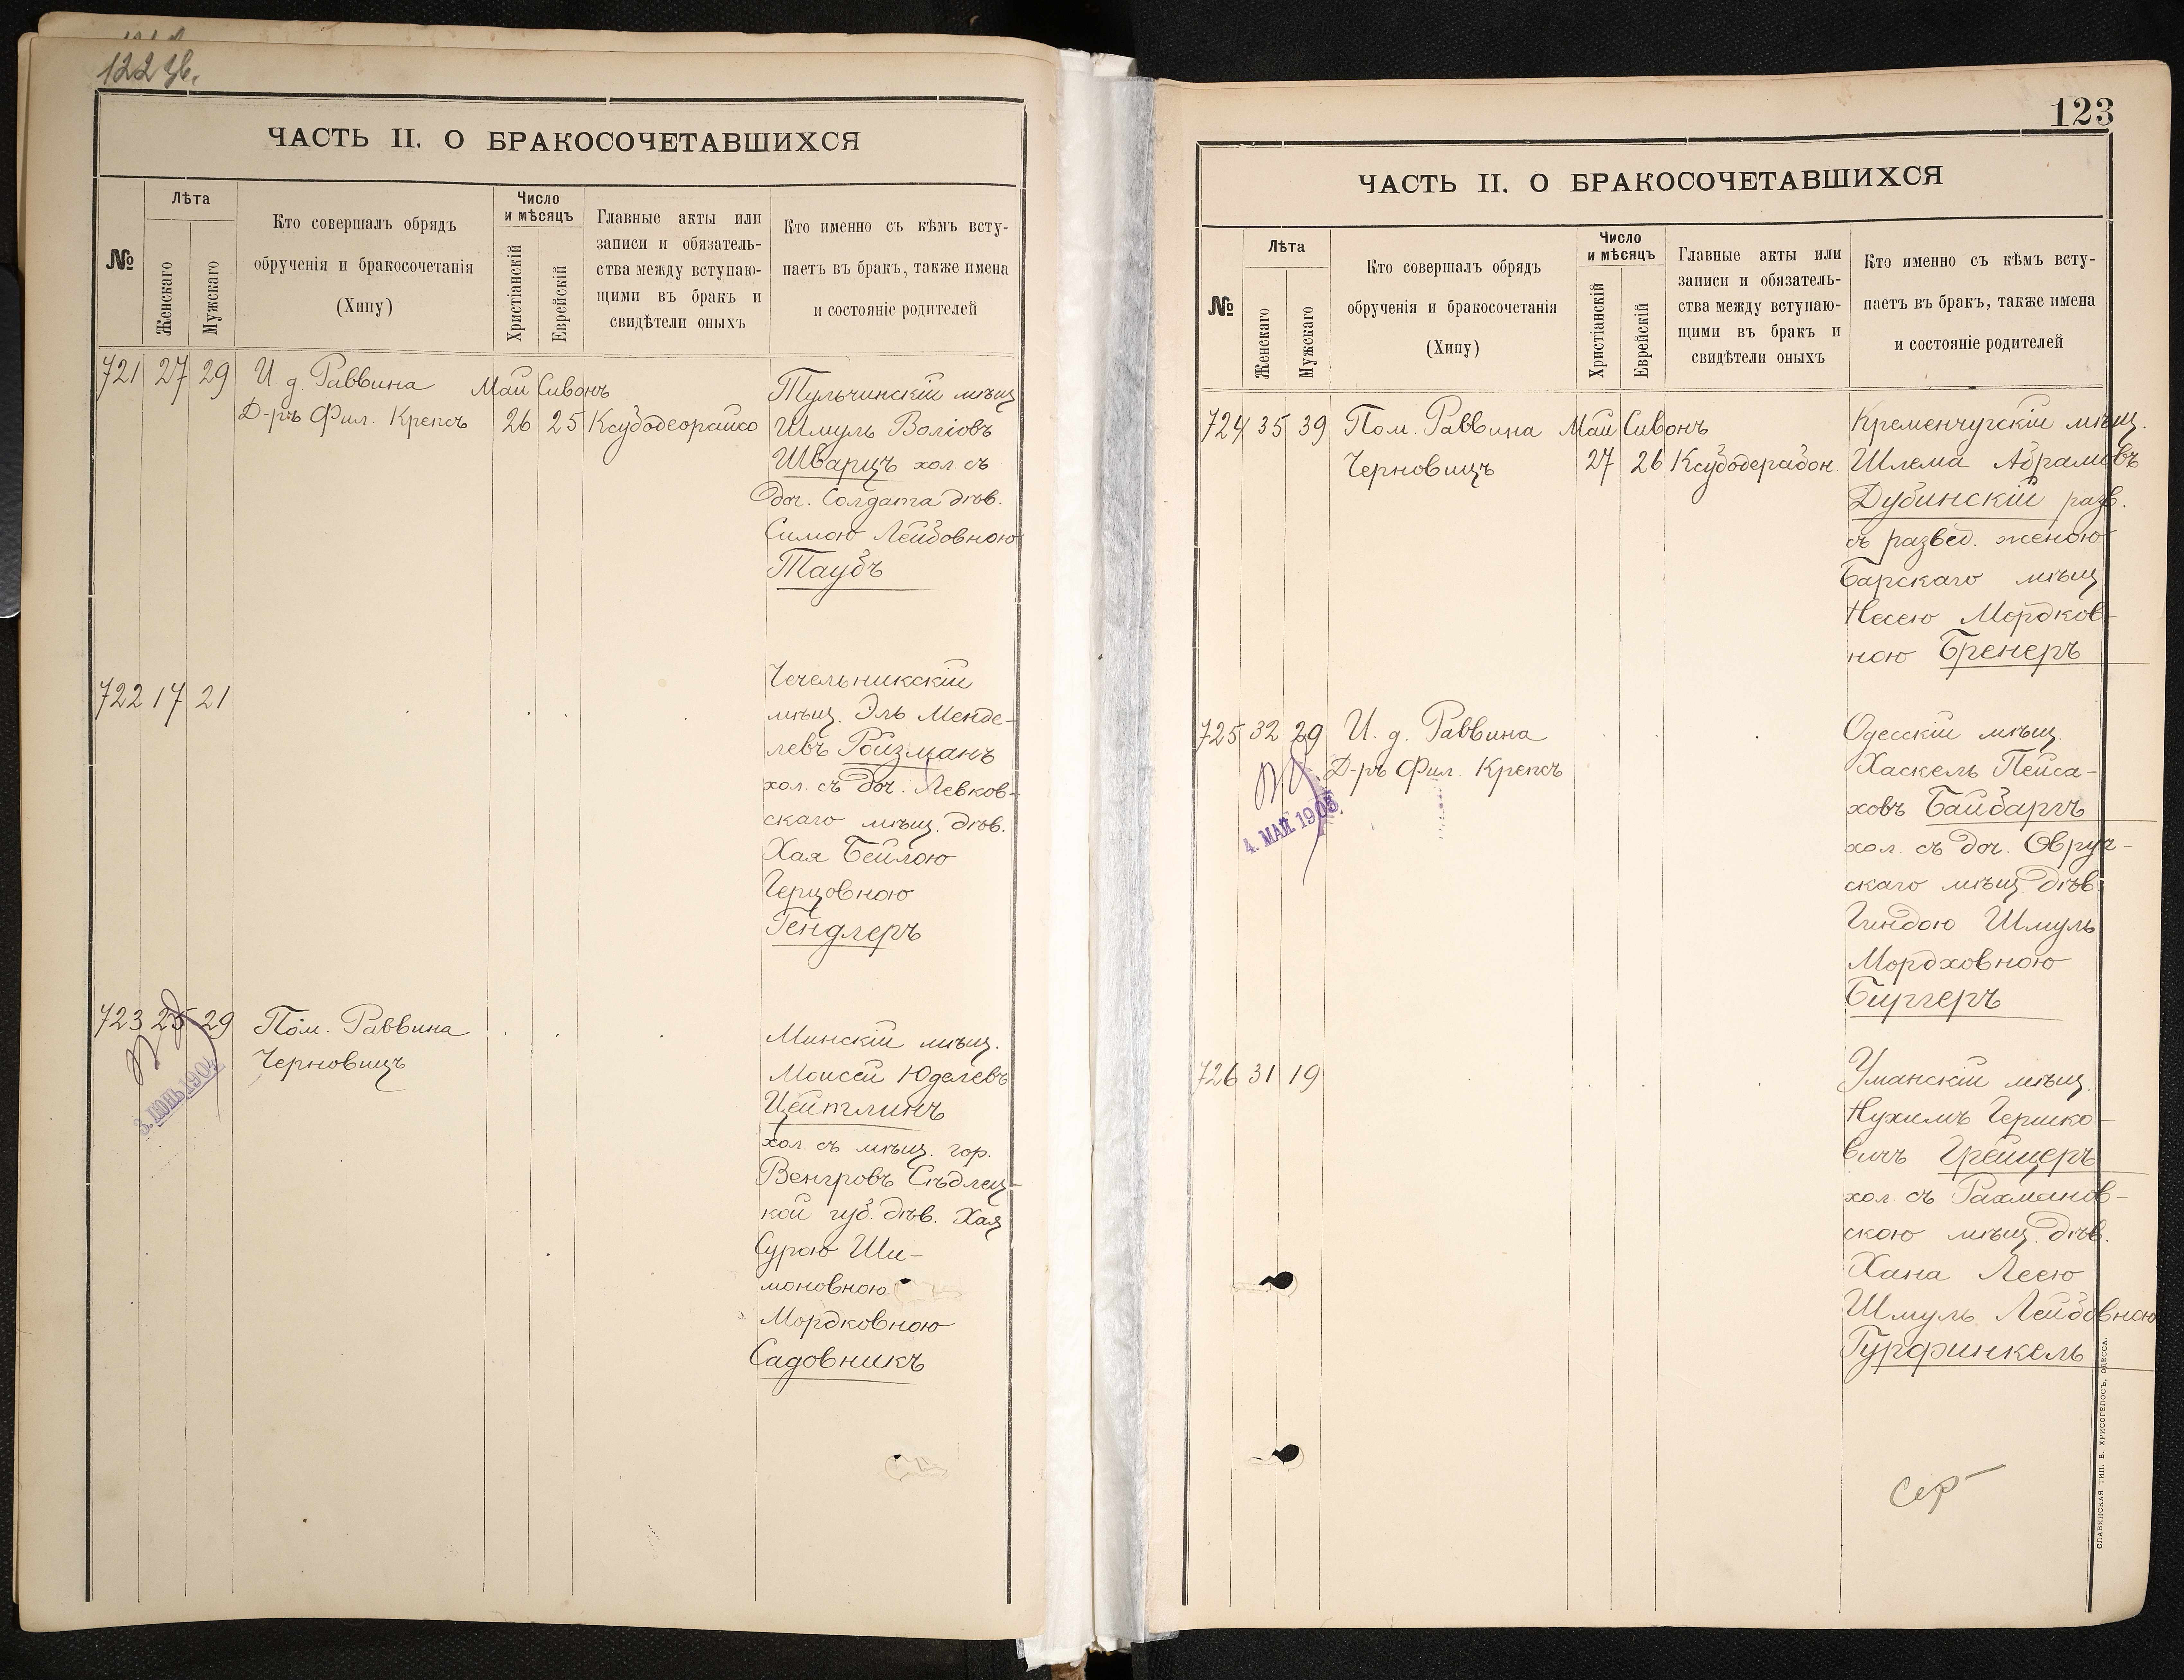 122 зв.
ЧАСТЬ II. О БРАКОСОЧЕТАВШИХСЯ
№
Лѣта
Женскаго
Мужскаго
Кто совершалъ обрядъ
обрученія и бракосочетанія
(Хипу)
Число
и мѣсяцъ
Христіанскій
Еврейскій
Главные акты или
записи и обязатель-
ства между вступаю-
щими въ бракъ и
свидѣтели оныхъ
Кто именно съ кѣмъ всту-
паетъ въ бракъ, также имена
и состояніе родителей
721 27 29 И д. Раввина Май Сивонъ Тульчинскій мѣщ
Д-ръ Фил. Крепсъ 26 25 Ксубодеорайсо Шмуль Воліовъ
Шварцъ хол. съ
доч. Солдата дѣв.
Симою Лейбовною
Таубъ
722 17 21 Чечельникскій
мѣщ. Эль Менде-
левъ Ройзманъ
хол. съ доч. Левков-
скаго мѣщ. дѣв.
Хая Бейлою
Герцовною
Гендлеръ
723 25 29 Пом. Раввина Минскій мѣщ.
Черновицъ Моисей Юделевъ
3. ІЮНЬ 1904
Цейтлинъ
хол. съ мѣщ. гор.
Венгровъ Сѣдлец-
кой губ. дѣв. Хая
Сурою Ши-
моновною
Мордковною
Садовникъ
123
ЧАСТЬ II. О БРАКОСОЧЕТАВШИХСЯ
№
Лѣта
Женскаго
Мужскаго
Кто совершалъ обрядъ
обрученія и бракосочетанія
(Хипу)
Число
и мѣсяцъ
Христіанскій
Еврейскій
Главные акты или
записи и обязатель-
ства между вступаю-
щими въ бракъ и
свидѣтели оныхъ
Кто именно съ кѣмъ всту-
паетъ въ бракъ, также имена
и состояніе родителей
724 35 39 Пом. Раввина Май Сивонъ Кременчугскій мѣщ.
Черновицъ 27 26 Ксубодерабон. Шлема Абрамовъ
Дубинскій разв.
съ развед. женою
Барскаго мѣщ
Несею Мордков-
ною Бренеръ
725 32 29 И. д. Раввина Одесскій мѣщ.
Д-ръ Фил. Крепсъ Хаскель Пейса-
4. МАЙ 1905
ховъ Байбаргъ
хол. съ доч. Овруч-
скаго мѣщ. дѣв.
Гиндою Шмуль
Мордховною
Биргеръ
726 31 19 Уманскій мѣщ.
Нухимъ Гершко-
вичъ Грейцеръ
хол. съ Рахманов-
скою мѣщ. дѣв.
Хана Леею
Шмуль Лейбовною
Гурфинкель
СЛАВЯНСКАЯ ТИП. Е. ХРИСОГЕЛОСЪ, ОДЕССА.